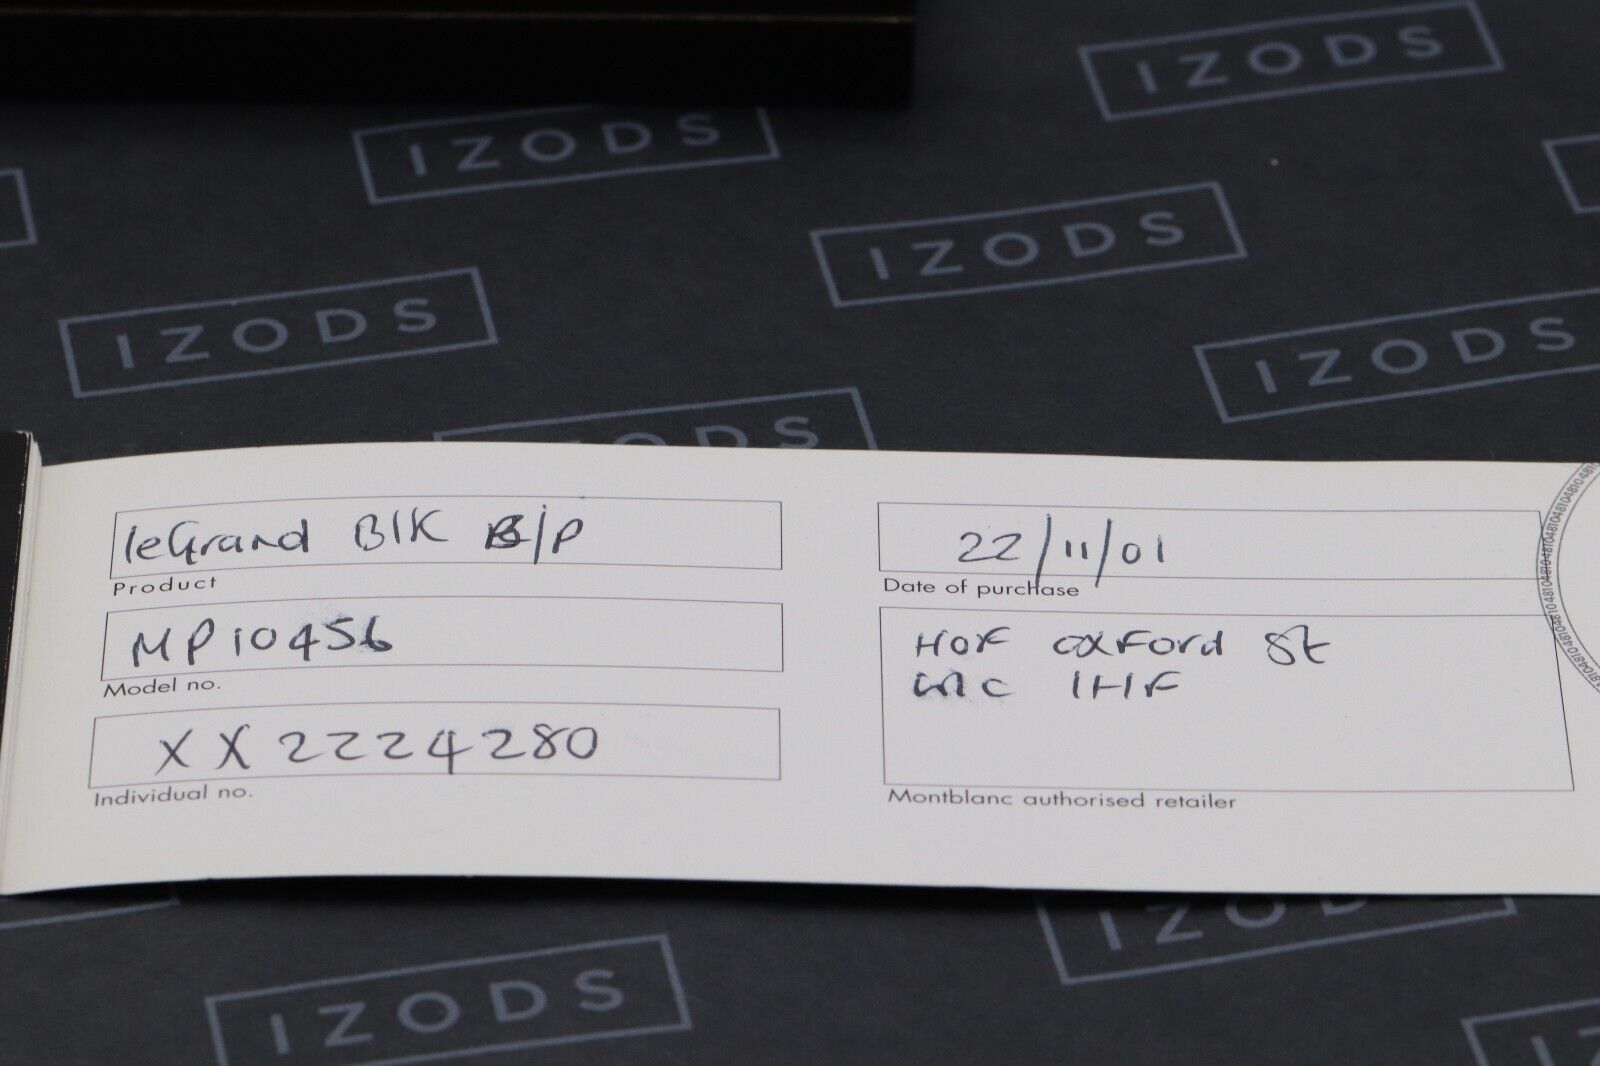 IZODS
IZODS
IZODS
IZODS
IZODS
IZODS
leGrand Blk B/P
Product
MP10456
Model no.
XX2224280
Individual no.
22/11/01
Date of purchase
HOF OXFord St
1HF
Montblanc authorised retailer
IZODS
IZODS